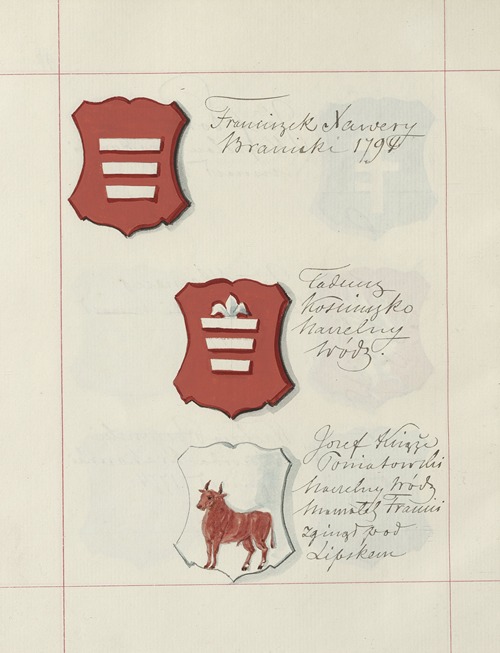 Franciszek Xawery
Branicki 1794
Tadeusz
Kościuszko
Naczelny
Wódz.
Józef Książe
Poniatowski
Naczelny Wódz
Marszałek Francii
zginął pod
Lipskem